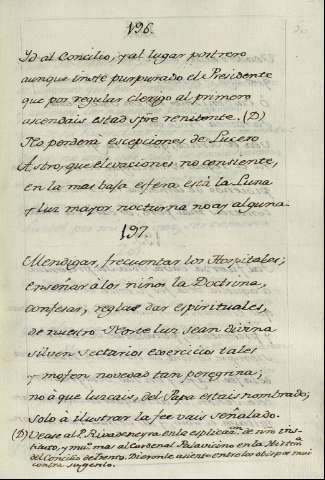 196.
Id al Concilio, y al lugar postrero
aunque inste purpurado el Presidente
que por regular clerigo al primero
ascendais estad spre renitente. (D)
No perderà escepciones de Lucero
Astro, que elevaciones no consiente,
en la mas baja esfera està la Luna
y luz mayor nocturna no ay alguna.
197.
Mendigar, frecuentar los Hospitales,
enseñar à los niños la Doctrina,
confesar, reglas dar espirituales,
de nuestro Norte luz sean divina
silven Sectarios exercicios tales
y mofen novedad tan peregrina;
no à que luzcais, del Papa estais nombrado;
solo à ilustrar la fee vais señalado.
(D) Vease al P. Rivadeneyra en la esplicaon. de nro ins-
tituto, y mas al Cardenal Palavicino en la Histora
del Concilio de Trento. Dieronle asiento entre los obispos mui
contra su genio.